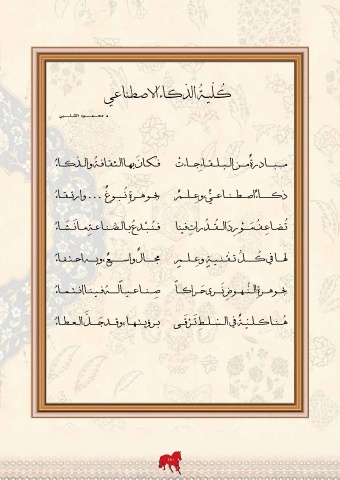 كُلّيةُ الذّكاءِ الاصطناعي
د. محمود الشلبي
مبادرةٌ من البلقا جاءتْ فكان بها الثقافةُ والذكاءُ
ذكاءٌ اصطناعيٌّ وعلمٌ لجوهرةٍ نبوغٌ... وارتقاءُ
تُضاعِفُ مَوْرِدَ القُدُراتِ فينا فتُبْدعُ بالصّناعةِ ما تشاءُ
لها في كُلِّ تقنيةٍ وعِلمٍ مجالٌ واسعٌ، وبهِ احتفاءُ
لجوهرةِ النُّهوضِ نرى حَراكاً صناعياً لهُ فينا انتماءُ
هنا كليةٌ في السلطِ ترقى برؤيتِها، وقد جَلَّ العطاءُ